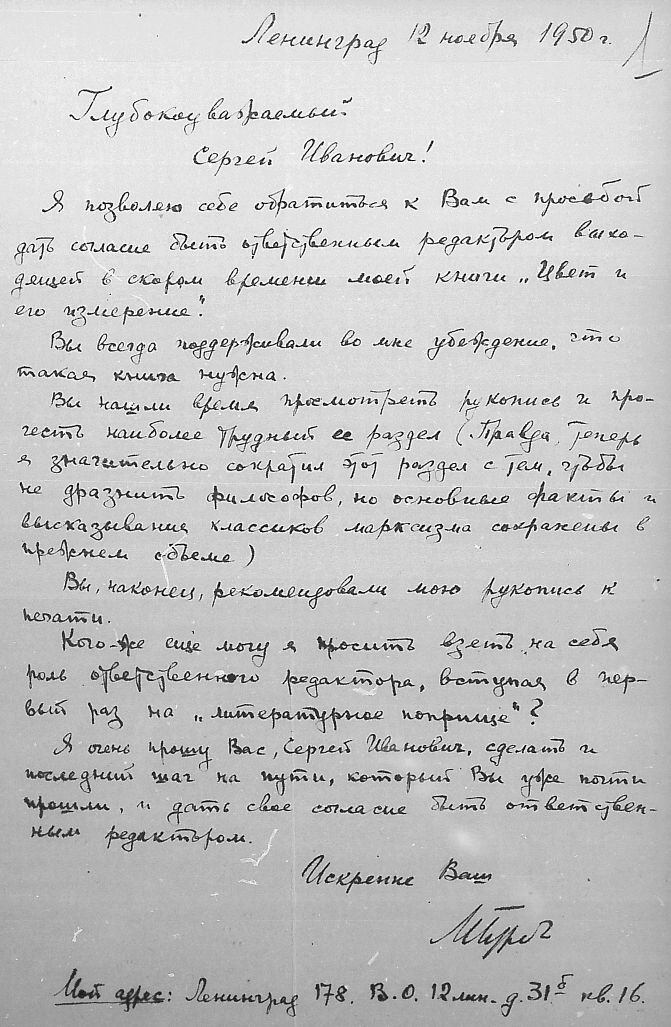 Ленинград 12 ноября 1950 г.
1
Глубокоуважаемый
Сергей Иванович!
Я позволяю себе обратиться к Вам с просьбой
дать согласие быть ответственным редактором выхо-
дящей в скором времени моей книги „Цвет и
его измерение".
Вы всегда поддерживали во мне убеждение, что
такая книга нужна.
Вы нашли время просмотреть рукопись и про-
честь наиболее трудный ее раздел (Правда, теперь
я значительно сократил этот раздел с тем, чтобы
не дразнить философов, но основные факты и
высказывания классиков марксизма сохранены в
прежнем объеме)
Вы, наконец, рекомендовали мою рукопись к
печати.
Кого-же еще могу я просить взять на себя
роль ответственного редактора, вступая в пер-
вый раз на „литературное поприще"?
Я очень прошу Вас, Сергей Иванович, сделать и
последний шаг на пути, который Вы уже почти
прошли, и дать свое согласие быть ответствен-
ным редактором.
Искренне Ваш
Мой адрес: Ленинград 178. В.О. 12 лин. д. 31б кв. 16.